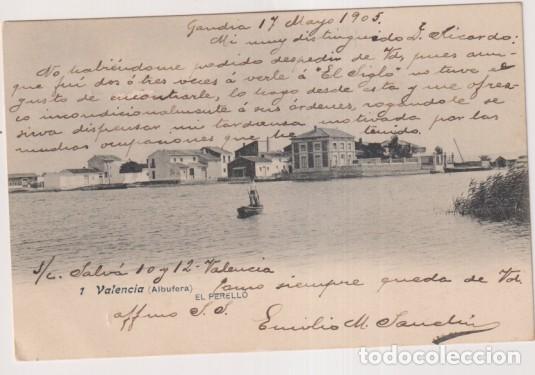 Gandia 17 Mayo 1905.
Mi muy distinguido D. Ricardo:
No habiéndome podido despedir de Vd, pues aun-
que fuí dos ó tres veces á verle á "El Siglo" no tuve el
gusto de encontrarle, lo hago desde esta y me ofrez-
co incondicionalmente á sus órdenes, rogandole se
sirva dispensar mi tardanza motivada por las
muchas ocupaciones que he tenido.
S/c. Salvá 10 y 12 - Valencia
Como siempre queda de Vd.
1 Valencia (Albufera)
EL PERELLÓ
affmo S. S. Emilio M.
todocoleccion.net